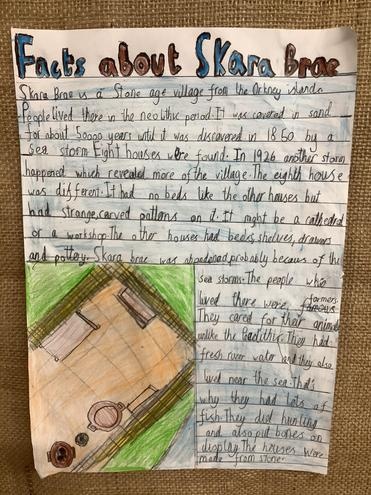 Facts about Skara Brae
Skara Brae is a Stone age village from the Orkney islands
People lived there in the neolithic period. It was covered in sand
for about 5000 years until it was discovered in 1850 by a
sea storm. Eight houses were found. In 1926 another storm
happened which revealed more of the village. The eighth house
was different. It had no beds like the other houses but
had strange carved pattons on it. It might be a cathedral
or a workshop. The other houses had beds, shelves, drawers
and pottery. Skara brae was abandoned, probably becaus of the
sea storms. The people who
lived there were farmers
They cared for their animals
unlike the They had
fresh river water and they also
lived near the sea. That's
why they had lots of
fish. They did hunting
and also put bones on
display. The houses were
made from stone.